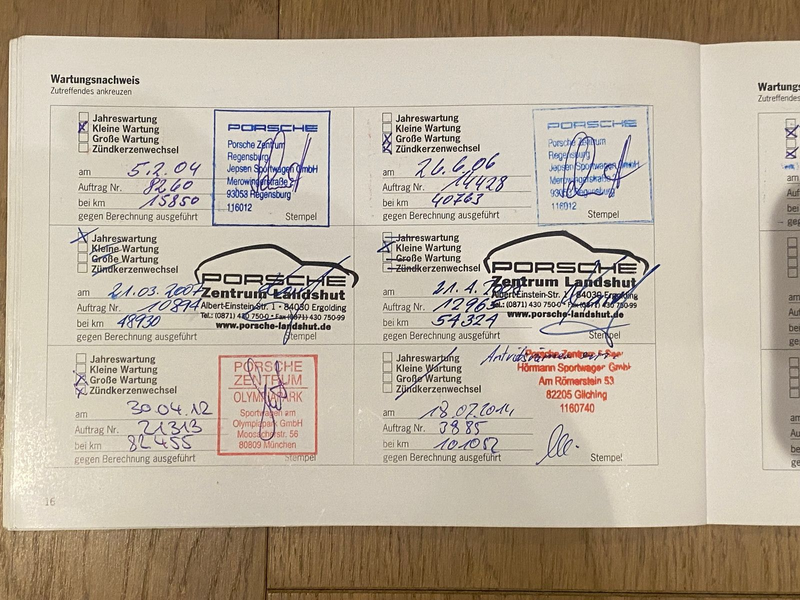 Wartungsnachweis
Zutreffendes ankreuzen
Jahreswartung
Kleine Wartung
Große Wartung
Zündkerzenwechsel
am 5.2.04
Auftrag Nr. 8260
bei km 15850
gegen Berechnung ausgeführt
Stempel
PORSCHE
Porsche Zentrum
Regensburg
Jepsen Sportwagen GmbH
Merowingerstraße
93053 Regensburg
116012
Jahreswartung
Kleine Wartung
Große Wartung
Zündkerzenwechsel
am 26.6.06
Auftrag Nr. 14428
bei km 40763
gegen Berechnung ausgeführt
Stempel
PORSCHE
Porsche Zentrum
Regensburg
Jepsen Sportwagen GmbH
93053 Regensburg
116012
Jahreswartung
Kleine Wartung
Große Wartung
Zündkerzenwechsel
am 21.03.2007
Auftrag Nr. 10894
bei km 48930
gegen Berechnung ausgeführt
Stempel
PORSCHE
Zentrum Landshut
Albert-Einstein-Str. 1 · 84030 Ergolding
Tel.: (0871) 430 750-0 · Fax (0871) 430 750-99
www.porsche-landshut.de
Jahreswartung
Kleine Wartung
Große Wartung
Zündkerzenwechsel
am 21.4.
Auftrag Nr.
bei km 54324
gegen Berechnung ausgeführt
Stempel
PORSCHE
Zentrum Landshut
Albert-Einstein-Str. 1 · 84030 Ergolding
Tel.: (0871) 430 750-0 · Fax (0871) 430 750-99
www.porsche-landshut.de
Jahreswartung
Kleine Wartung
Große Wartung
Zündkerzenwechsel
am 30.04.12
Auftrag Nr. 21313
bei km 82455
gegen Berechnung ausgeführt
Stempel
PORSCHE
ZENTRUM
OLYMPIAPARK
Sportwagen am
Olympiapark GmbH
Moosacherstr. 56
80809 München
Jahreswartung
Kleine Wartung
Große Wartung
Zündkerzenwechsel
am 18.07.2014
Auftrag Nr. 3985
bei km 101052
gegen Berechnung ausgeführt
Stempel
Porsche Zentrum
Hörmann Sportwagen GmbH
Am Römerstein 53
82205 Gilching
1160740
16